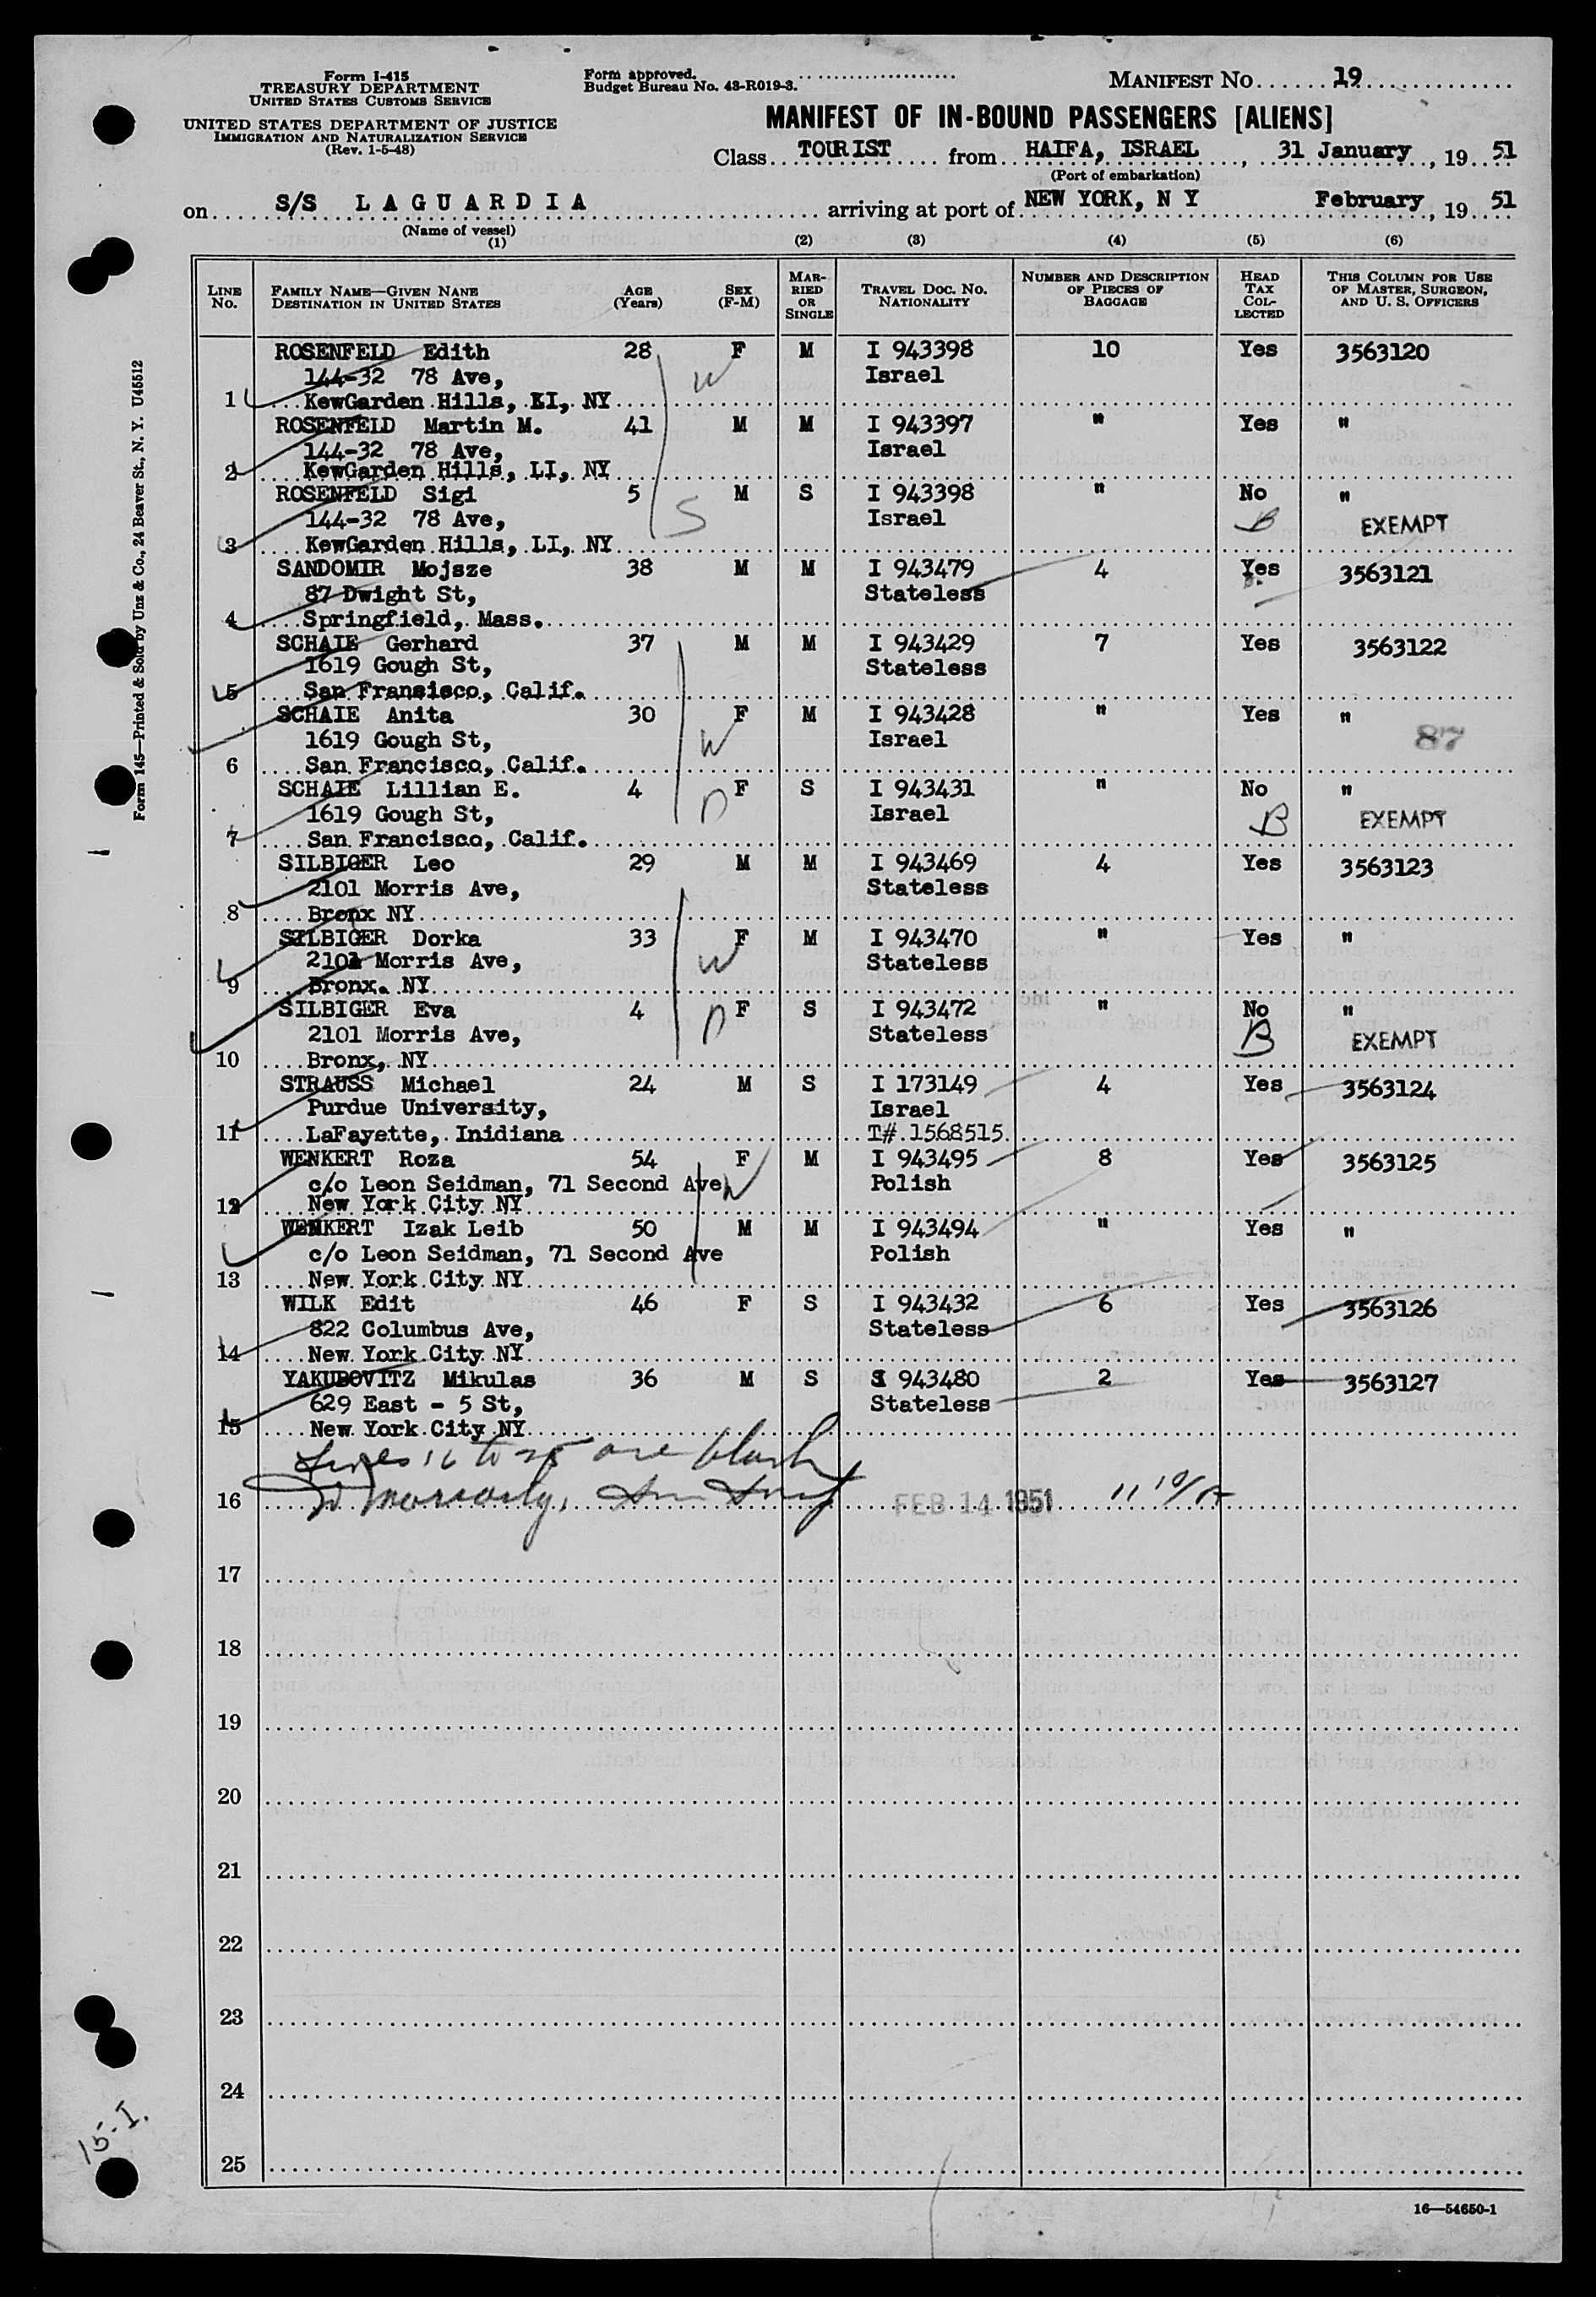 Form I-415
TREASURY DEPARTMENT
UNITED STATES CUSTOMS SERVICE
UNITED STATES DEPARTMENT OF JUSTICE
IMMIGRATION AND NATURALIZATION SERVICE
(Rev. 1-5-48)
Form approved.
Budget Bureau No. 43-R019-3.
MANIFEST NO. 19
MANIFEST OF IN-BOUND PASSENGERS [ALIENS]
Class TOURIST from HAIFA, ISRAEL, 31 January, 19 51
(Port of embarkation)
on S/S LAGUARDIA arriving at port of NEW YORK, N Y February, 19 51
(Name of vessel)
(1) (2) (3) (4) (5) (6)
LINE No. FAMILY NAME—GIVEN NANE DESTINATION IN UNITED STATES AGE (Years) SEX (F-M) MARRIED OR SINGLE TRAVEL DOC. NO. NATIONALITY NUMBER AND DESCRIPTION OF PIECES OF BAGGAGE HEAD TAX COLLECTED THIS COLUMN FOR USE OF MASTER, SURGEON, AND U. S. OFFICERS
ROSENFELD Edith 28 F M I 943398 10 Yes 3563120
144-32 78 Ave, W Israel
1 KewGarden Hills, LI, NY
ROSENFELD Martin M. 41 M M I 943397 " Yes "
144-32 78 Ave, Israel
2 KewGarden Hills, LI, NY
ROSENFELD Sigi 5 M S I 943398 " No "
144-32 78 Ave, S Israel B EXEMPT
3 KewGarden Hills, LI, NY
SANDOMIR Mojsze 38 M M I 943479 4 Yes 3563121
87 Dwight St, Stateless
4 Springfield, Mass.
SCHAIE Gerhard 37 M M I 943429 7 Yes 3563122
1619 Gough St, Stateless
5 San Fransisco, Calif.
SCHAIE Anita 30 F M I 943428 " Yes "
1619 Gough St, W Israel 87
6 San Francisco, Calif.
SCHAIE Lillian E. 4 F S I 943431 " No "
1619 Gough St, D Israel B EXEMPT
7 San Francisco, Calif.
SILBIGER Leo 29 M M I 943469 4 Yes 3563123
2101 Morris Ave, Stateless
8 Bronx NY
SILBIGER Dorka 33 F M I 943470 " Yes "
2101 Morris Ave, W Stateless
9 Bronx. NY
SILBIGER Eva 4 F S I 943472 " No "
2101 Morris Ave, D Stateless B EXEMPT
10 Bronx, NY
STRAUSS Michael 24 M S I 173149 4 Yes 3563124
Purdue University, Israel
11 LaFayette, Inidiana T#.1568515
WENKERT Roza 54 F M I 943495 8 Yes 3563125
c/o Leon Seidman, 71 Second Ave, W Polish
12 New York City NY
WENKERT Izak Leib 50 M M I 943494 " Yes "
c/o Leon Seidman, 71 Second Ave Polish
13 New York City NY
WILK Edit 46 F S I 943432 6 Yes 3563126
822 Columbus Ave, Stateless
14 New York City NY
YAKUBOVITZ Mikulas 36 M S I 943480 2 Yes 3563127
629 East - 5 St, Stateless
15 New York City NY
Lines 16 to 25 are blank
16 Moriarty, FEB 14 1951 11 10/A
17
18
19
20
21
22
23
24
25
16—54650-1
Form 145—Printed & Sold by Unz & Co., 24 Beaver St., N. Y. U45512
15-I.